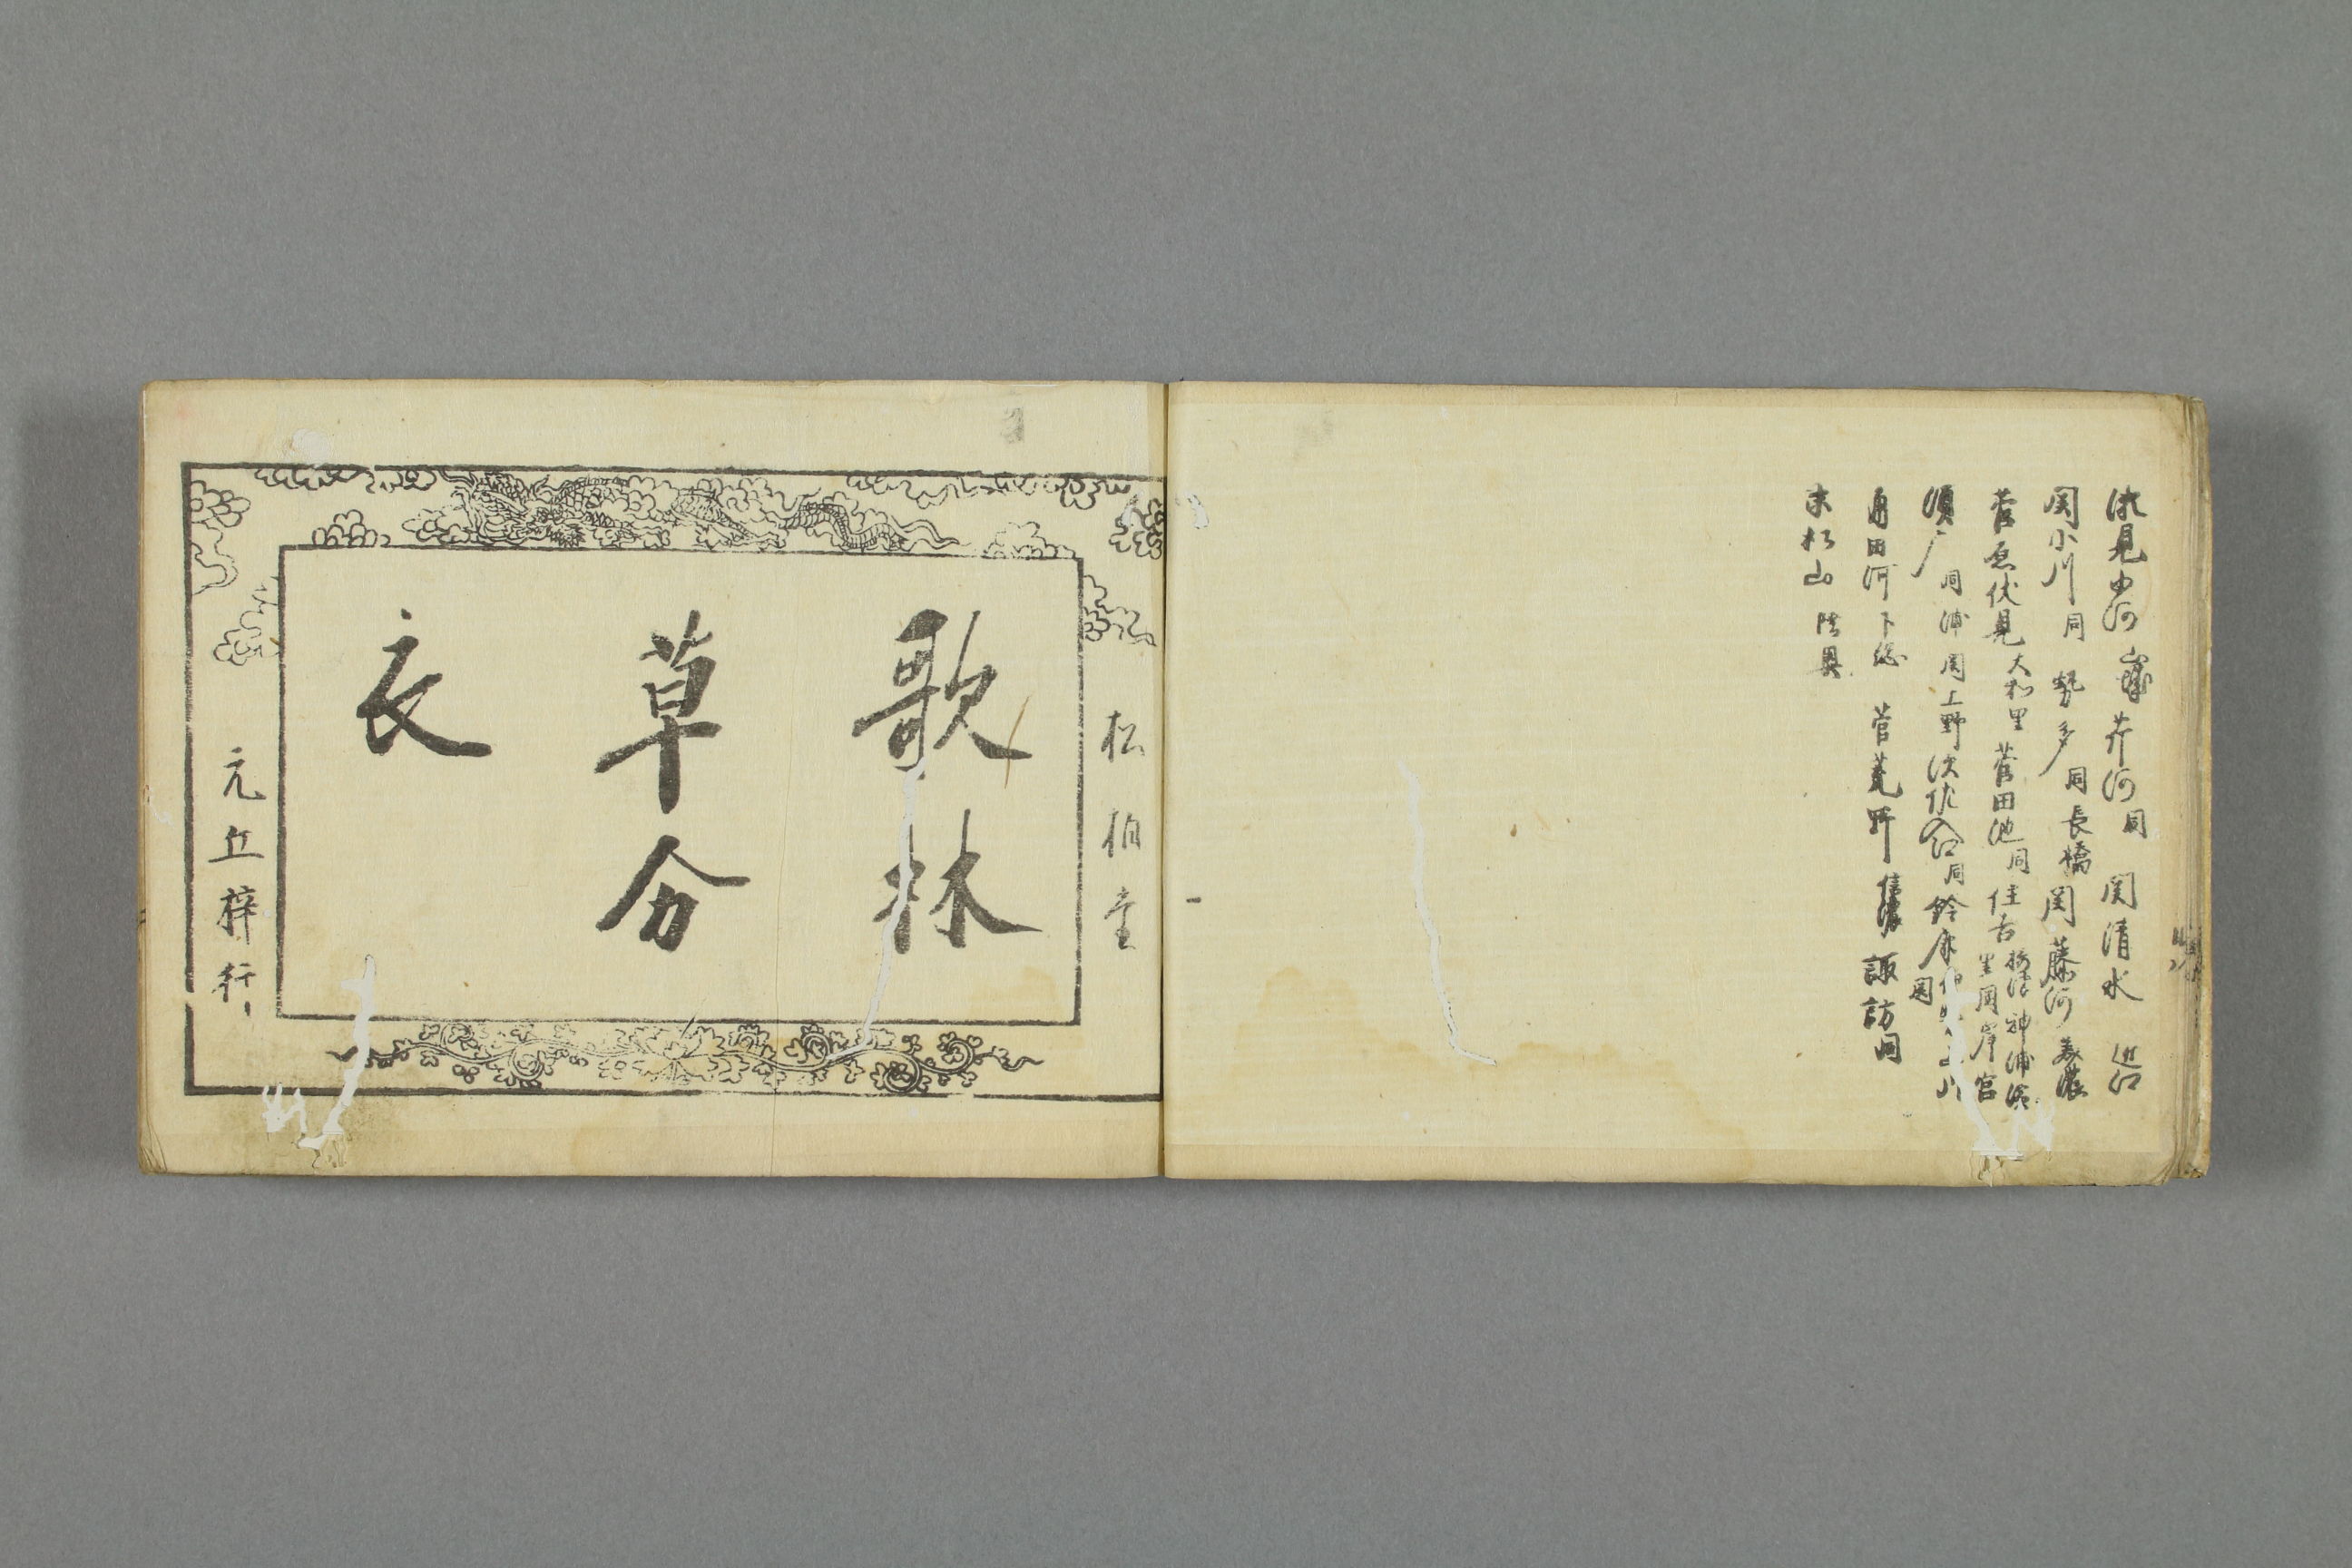 流見中河 山城 芹河 同 関清水 近江
関小川 同 勢多 同 長橋 関藤河 美濃
菅原伏見 大和 里 菅田池 同 住吉 摂津 神 浦 浜 里 同 岸 宮
須广 同 浦 関 上野 佐入江 同 鈴鹿 川 関
角田河 下総 菅荒野 信濃 諏訪 同
末松山 陸奥
松伯堂
歌林
草分
衣
元丘梓行